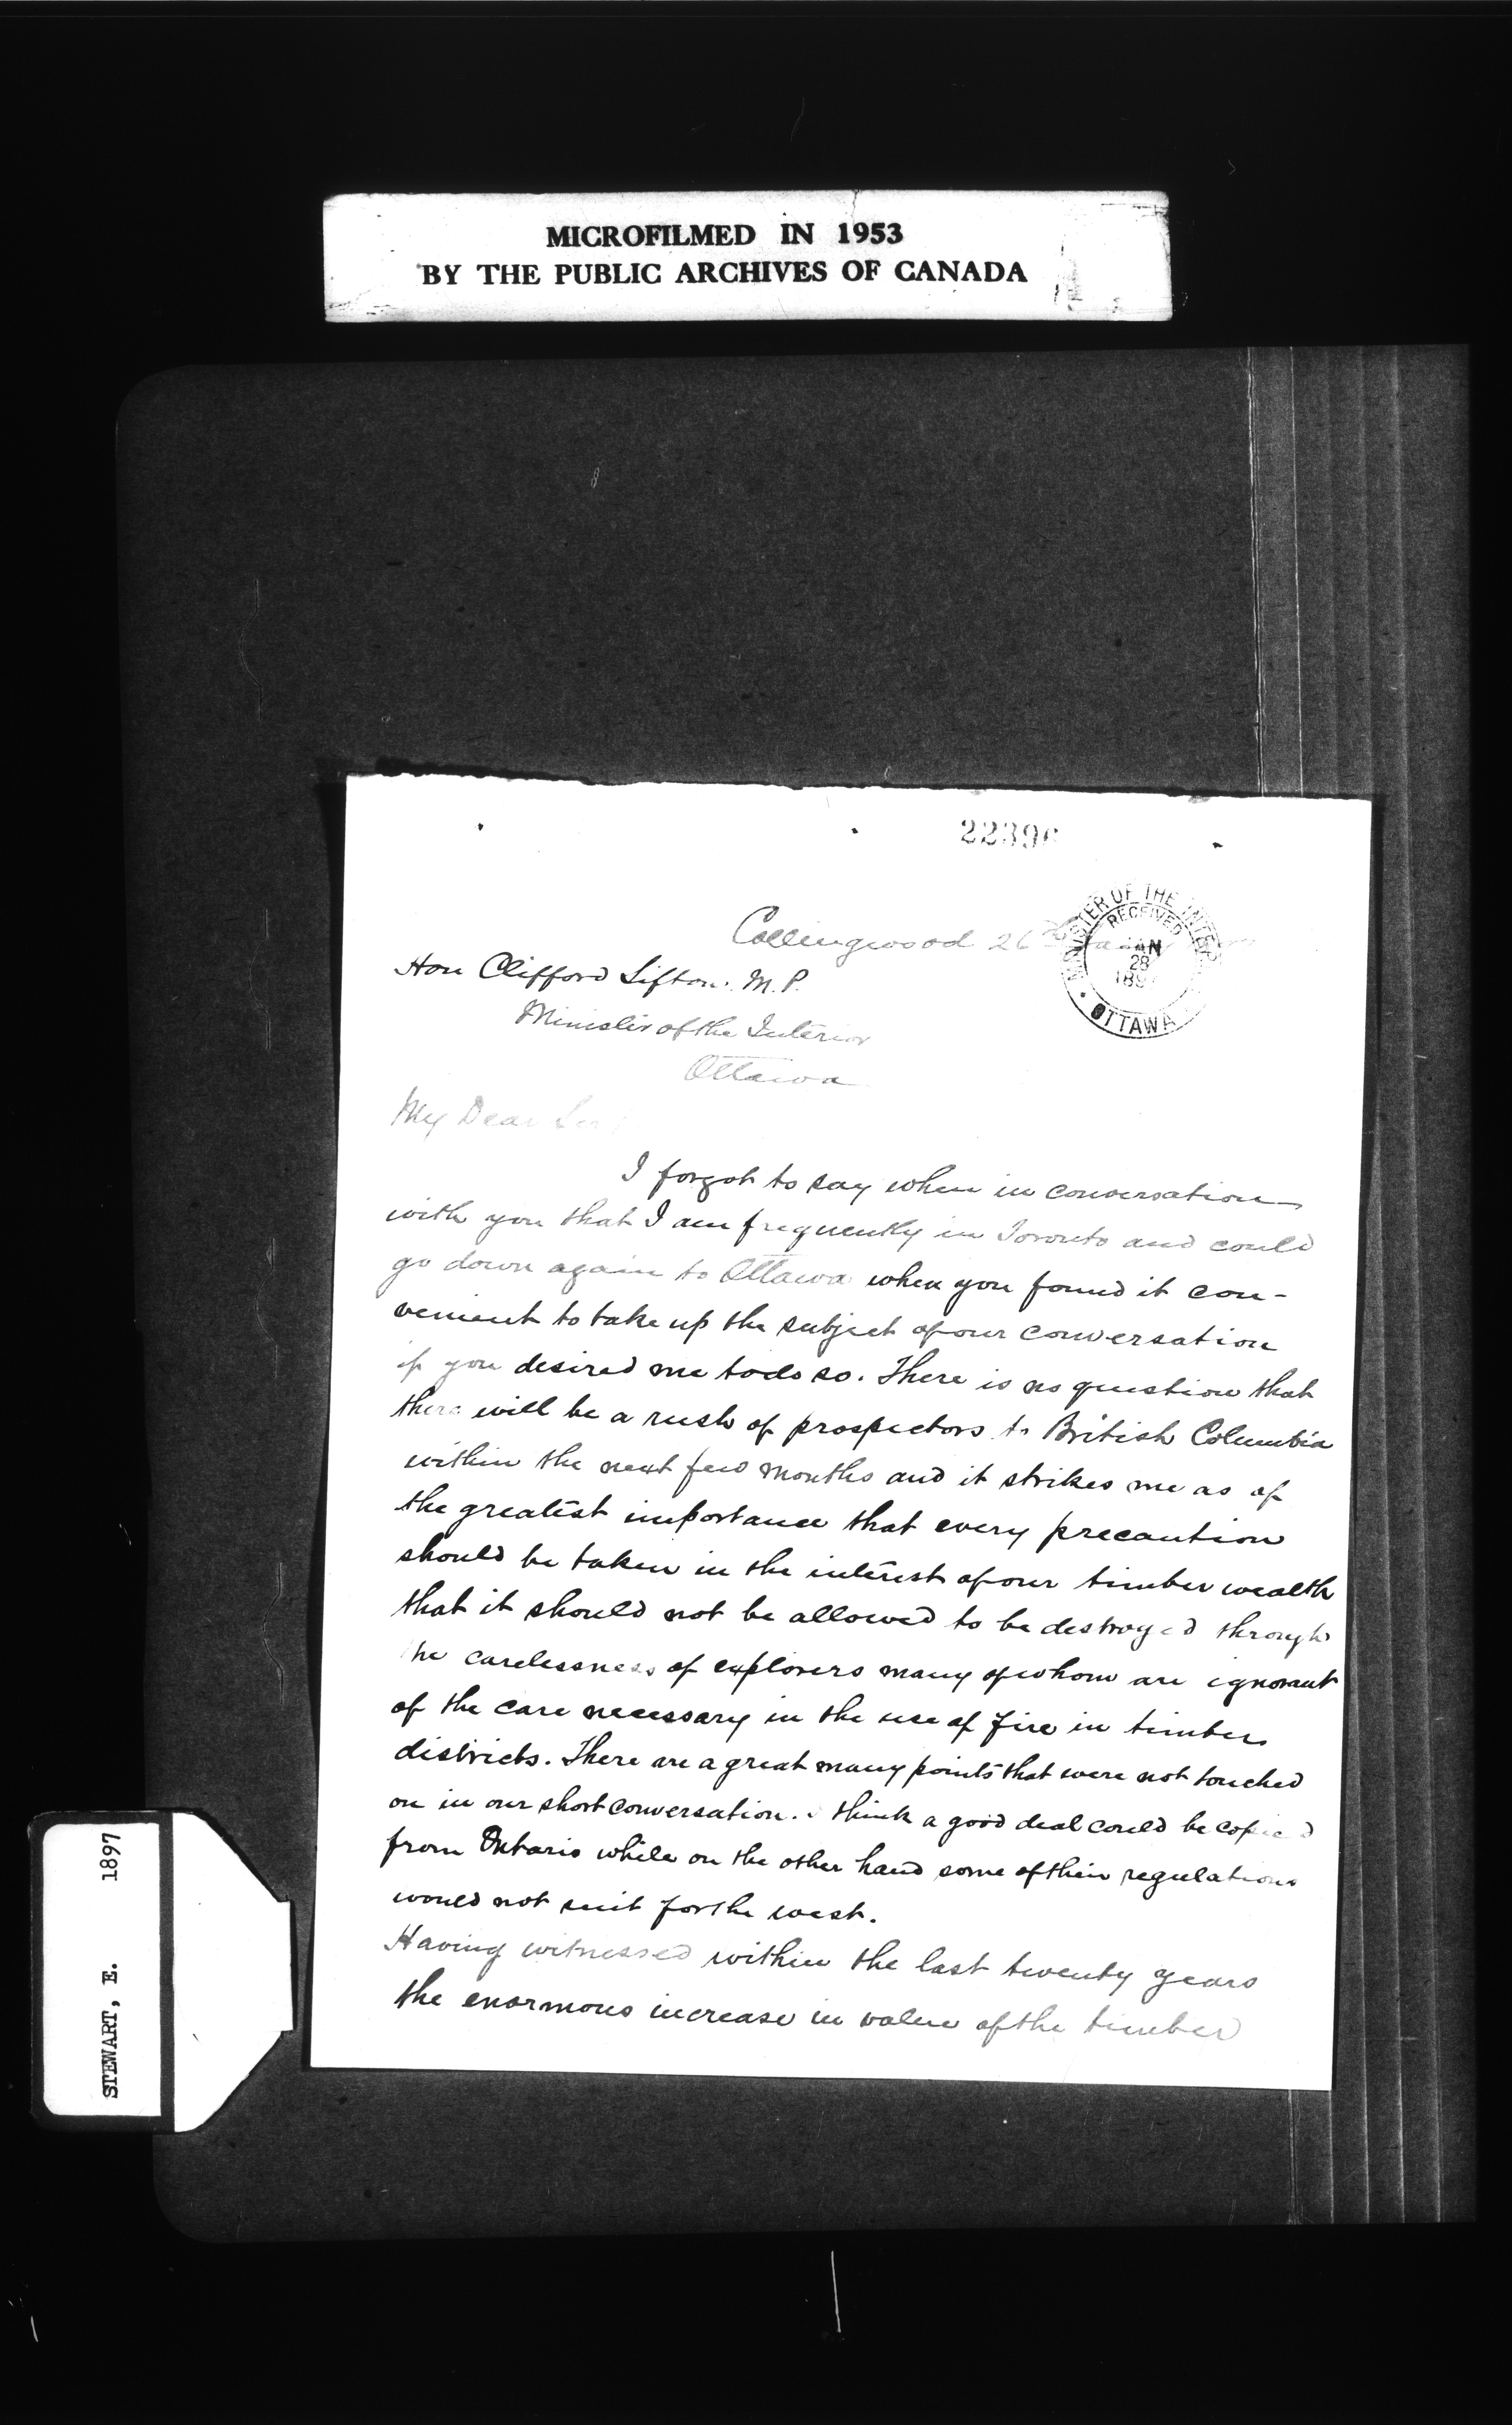 MICROFILMED IN 1953
BY THE PUBLIC ARCHIVES OF CANADA
22396
Collingwood 26th
MINISTER OF THE INTERIOR
RECEIVED
JAN
28
189
OTTAWA
Hon Clifford Sifton. M.P.
Minister of the Interior
Ottawa
My Dear Sir
I forgot to say when in conversation
with you that I am frequently in Toronto and could
go down again to Ottawa when you found it con-
venient to take up the subject of our conversation
if you desired me to do so. There is no question that
there will be a rush of prospectors to British Columbia
within the next few months and it strikes me as of
the greatest importance that every precaution
should be taken in the interest of our timber wealth
that it should not be allowed to be destroyed through
the carelessness of explorers many of whom are ignorant
of the care necessary in the use of fire in timber
districts. There are a great many points that were not touched
on in our short conversation. I think a good deal could be copied
from Ontario while on the other hand some of their regulations
would not suit for the west.
Having witnessed within the last twenty years
the enormous increase in value of the timber
STEWART, E. 1897